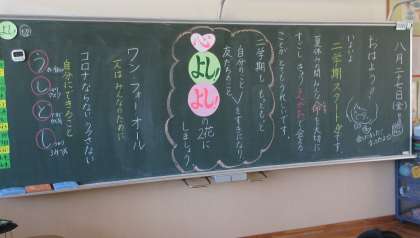 八月二十七日(金)
おはよう!
いよいよ
二学期スタートです。
夏休みの間、みんなが命を大切に
すごし、きょう、元気に会える
ことが とってもうれしいです。
二学期も もっともっと
自分のこと
友だちのこと
をすきになり
心
よし!
よし!
の花に
しましょう。
ワン フォ オール
一人は みんなのために
コロナにならない うつさない
自分にできること
う
し
と
し